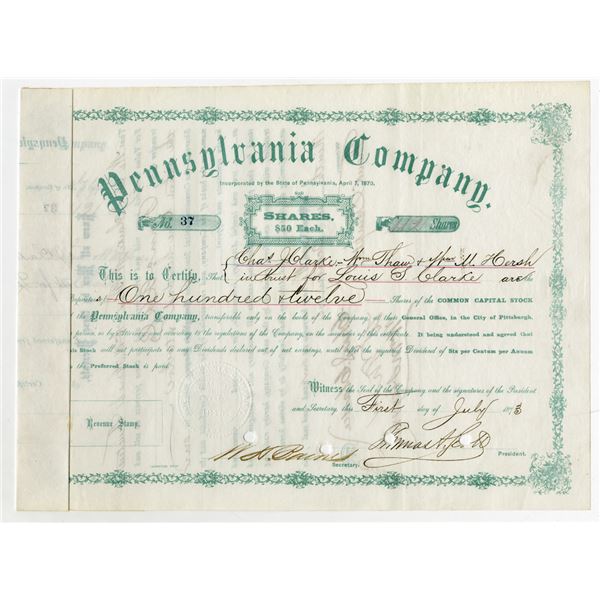 Pennsylvania Company.
Incorporated by the State of Pennsylvania, April 7, 1870.
No. 37
SHARES,
$50 Each.
112 Shares
Chas J Clarke - Wm Thaw & Wm M. Hersh
This is to Certify, That in trust for Louis S Clarke are the
Proprietors of One hundred & twelve Shares of the COMMON CAPITAL STOCK
of the Pennsylvania Company, transferable only on the books of the Company, at their General Office, in the City of Pittsburgh,
in person or by Attorney and according to the regulations of the Company, on the surrender of this certificate. It being understood and agreed that
this Stock will not participate in any Dividends declared out of net earnings, until after the regular Dividend of Six per Centum per Annum
on the Preferred Stock is paid.
Witness the Seal of the Company and the signatures of the President
and Secretary, this First day of July 1873
Revenue Stamp.
Thomas A. Scott
President.
W. H. Barnes
Secretary.